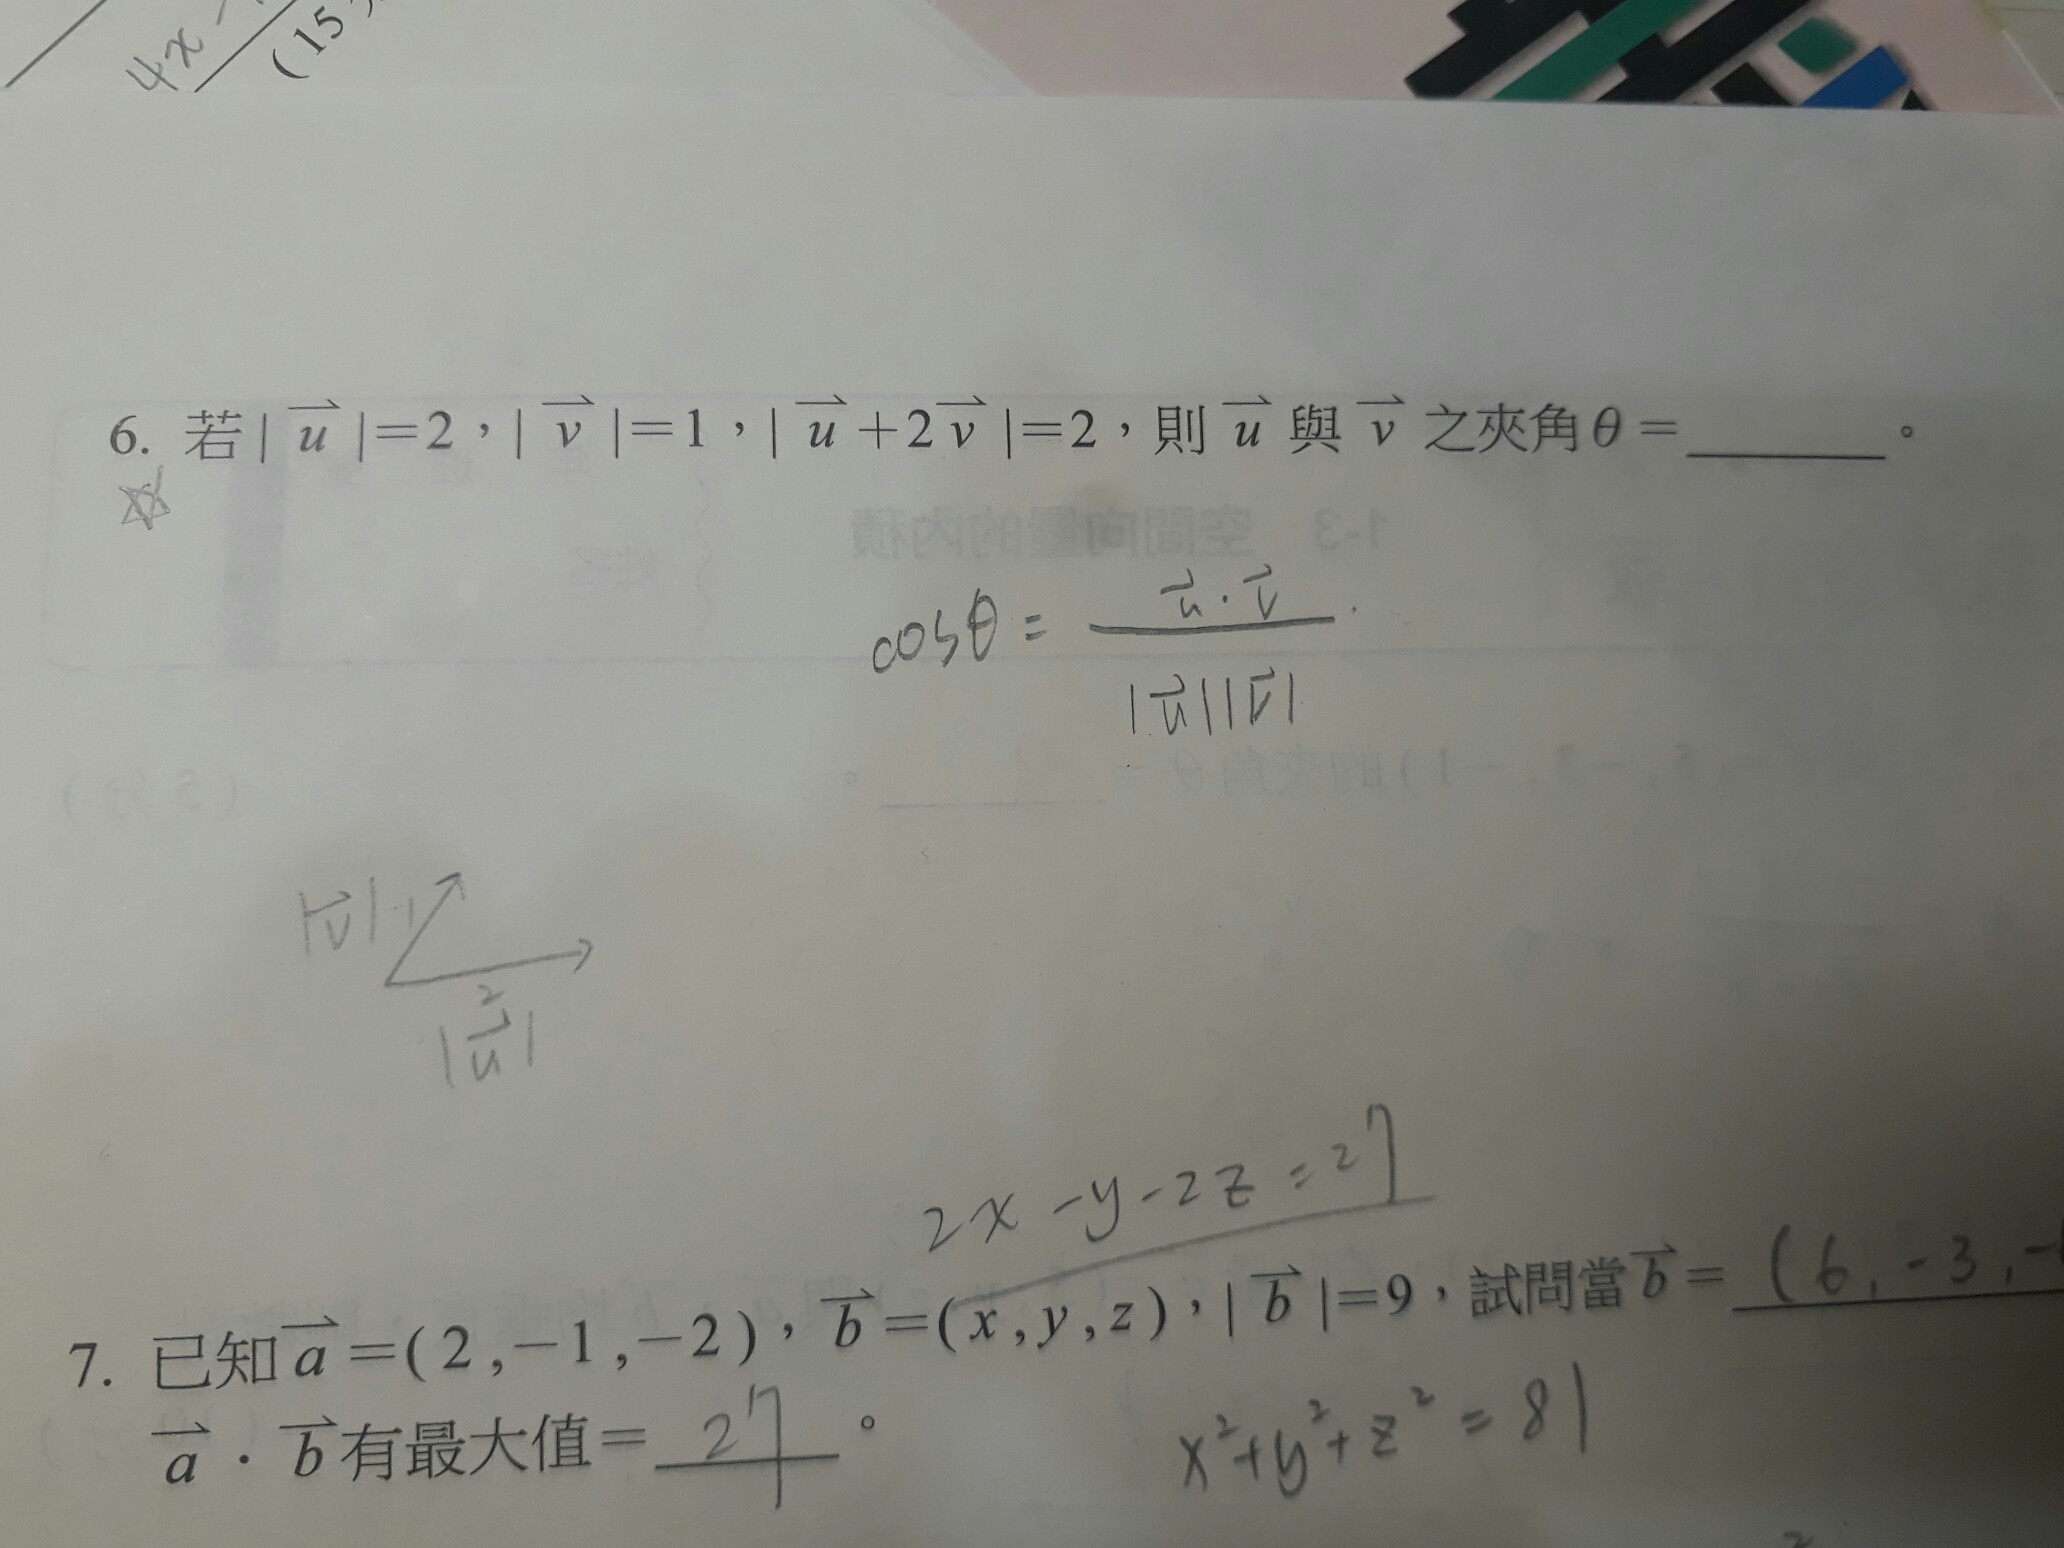 4x
(15
6. 若| u |=2，| v |=1，| u +2 v |=2，則 u 與 v 之夾角θ= ______ 。
cosθ = u · v
|u||v|
|v| 1
2
|u|
2x -y -2z = 27
7. 已知 a =(2,-1,-2)，b =(x,y,z)，| b |=9，試問當 b = (6, -3, -
a · b 有最大值= 27 。
x²+y²+z² = 81